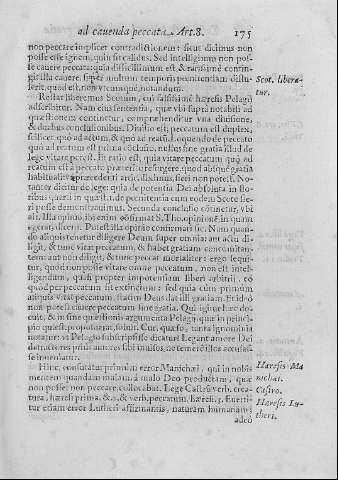 ad cavenda peccata. Art.8. 175
non peccare implicet contradictionem: sicut dicimus non
posse esse ignem, quin sit calidus. Sed intelligimus non pos-
se cavere peccata: quia difficillimum est & rarissime contin-
git illa cavere, super multum temporis poenitentiam distu-
lerit, quod est non vt cumque notandum.
Scot. libera-
tur.
Restat liberemus Scotum, cui falsissime haeresis Pelagii
adscribitur. Nam eius sententia, quae vbi supra nobis ad
quaestionem continetur, comprehenditur vna divisione,
& duabus conclusionibus. Divisio est; peccatum est duplex,
scilicet quo ad actum, & quo ad reatum. loquendo de peccato
quo ad reatum est prima conclusio, nullus sine gratia illud de
lege vitare potest. Et ratio est, quia vitare peccatum quo ad
reatum est a peccato praeterito resurgere, quod absque gratia
habituali, praecedenti actu, illius non, fieri non potest. No-
tanter dicitur de lege: quia de potentia Dei absoluta in sco-
libus quarta in quaest. de poenitentia cum eodem Scoto fie-
ri posse demonstravimus. Secunda conclusio continetur, vbi
ali. Illa opinio ibi enim confirmat S. Tho. opinione in quam
egerat, dicens. Potest illa opinio confirmari sic. Non quan-
do aliquis tenetur diligere Deum super omnia aut actu di-
ligit, & tunc vitat peccatum, & habet gratiam concomitan-
tem: aut non diligit, & tunc peccat mortaliter: ergo sequi-
tur, quod non posse vitare omne peccatum, non est intel-
ligendum, quasi propter impotentiam liberi arbitrii, eo
quod per peccatum sit extinctum: sed quia cum primum
aliquis vitat peccatum, statim Deus dat illi gratiam. Et ideo
non potest cavere peccatum sine gratia. Qui igitur haec do-
cuit, & in quaestionis argumenta Pelagii, quae in princi-
pio quaest. propobatur, solvit. Cur, quaeso, tanta ignominia
notatur: vt Pelagio subscripsisse dicatur? Legant amore Dei
detractores prius autores sibi invisos, ne temere illos accusas-
se inveniatur.
Hinc, confutatur primum error Manichaei, qui in nobis
mentem quandam malam, a malo Deo productam, quae
non posset non peccare, collocabat. Lege Castru verb. crea-
tura, haeresi prima. & 2. & verb. peccatum. haeresi. 1. Evertitur
etiam error Lutheri affirmantis, naturam humanam:
adeo
Haeresis Ma
nichaei.
Castro.
Haeresis Lu-
theri.